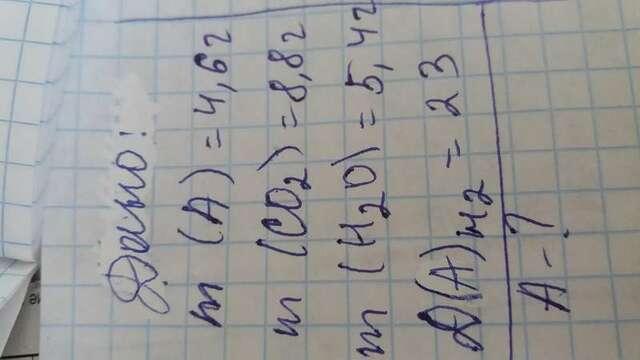 Дано:
m (A) = 4,6г
m (CO₂) = 8,8г
m (H₂O) = 5,4г
D(A)H₂ = 23
A - ?